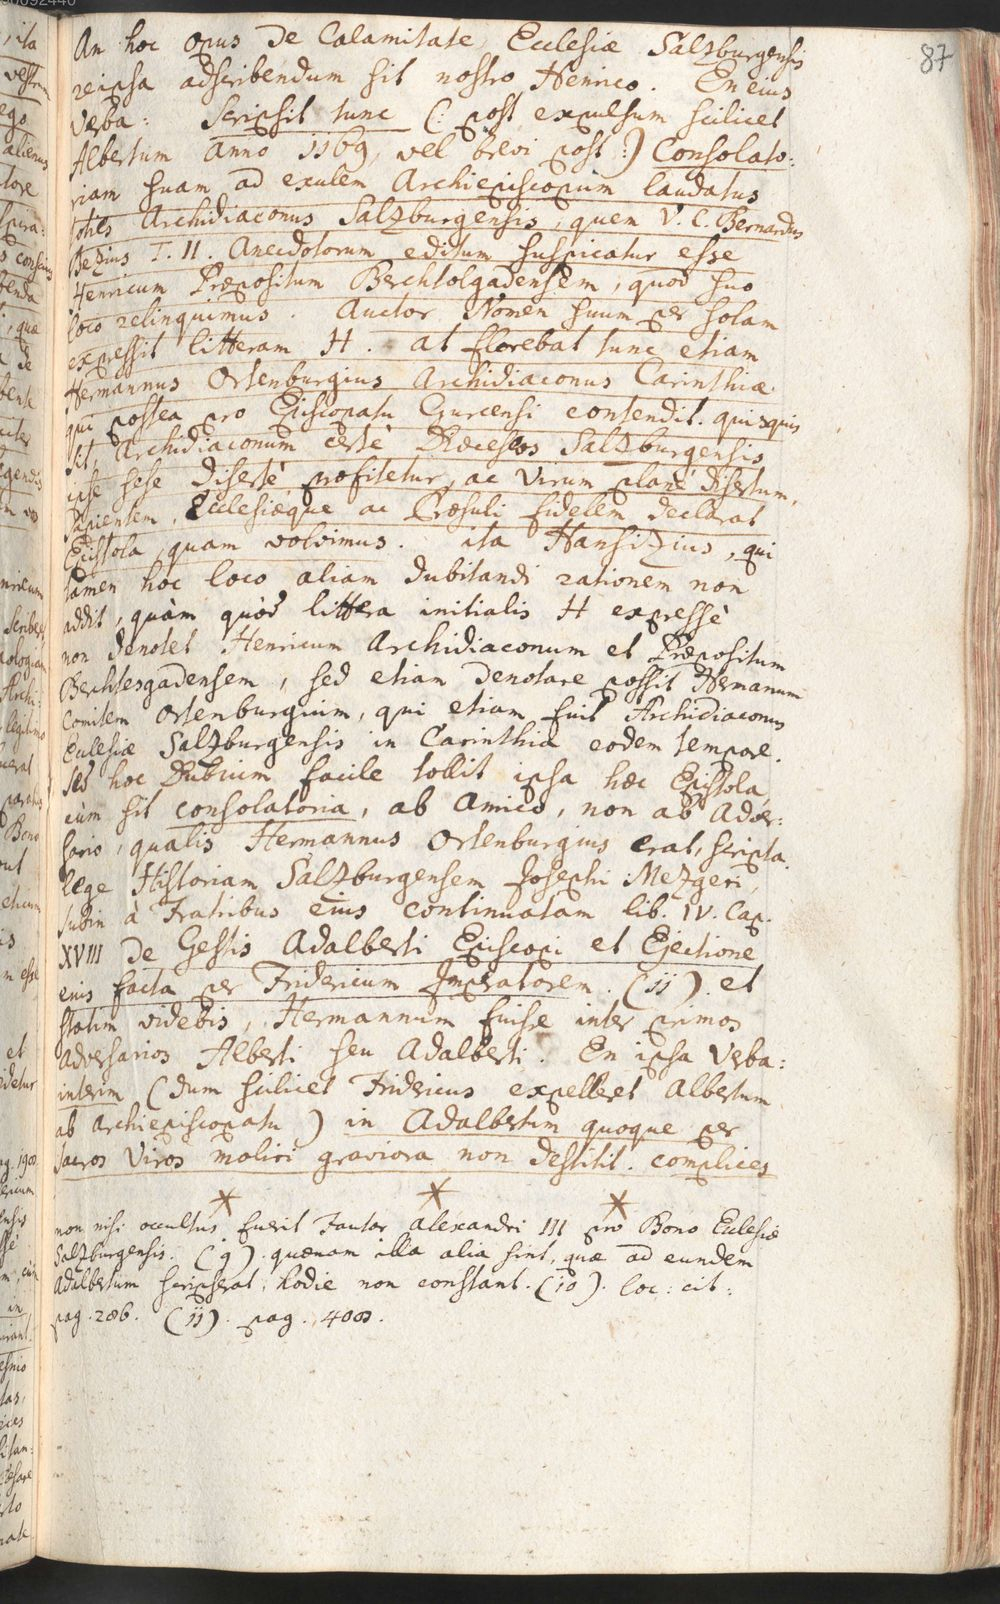 87
An hoc opus de Calamitate Ecclesiæ Salzburgensis
reipsa adscribendum sit nostro Henrico. En eius
verba: Scripsit tunc (: post expulsum scilicet
Albertum anno 1169, vel brevi post :) Consolato:
riam suam ad exulem Archiepiscopum laudatus
toties Archidiaconus Salzburgensis, quem V. C. Bernardus
Pezius T. II. Anecdotorum editum suspicatur esse
Henricum Præpositum Berchtolgadensem, quod suo
loco relinquimus. Auctor Nomen suum per solam
expressit litteram H. at florebat tunc etiam
Hermannus Ortenburgius Archidiaconus Carinthiæ.
qui postea pro Episcopatu Gurcensi contendit. quisquis
sit, Archidiaconum certè Diœceseos Salzburgensis
ipse sese disertè profitetur, ac virum planè disertum,
sapientem, Ecclesiæque ac Præsuli fidelem declarat
Epistola, quam volvimus. ita Hansizius, qui
tamen hoc loco aliam dubitandi rationem non
addit, quàm quòd littera initialis H expressè
non denotet Henricum Archidiaconum et Præpositum
Berchtesgadensem, sed etiam denotare possit Hermanum
Comitem Ortenburgium, qui etiam fuit Archidiaconus
Eclesiæ Salzburgensis in Carinthia eodem tempore.
sed hoc Dubium facile tollit ipsa hæc Epistola,
cùm sit consolatoria, ab amico, non ab adver:
sario, qualis Hermannus Ortenburgius erat, scripta.
lege Historiam Salzburgensem Josephi Mezgeri,
subin à Fratribus eius continuatam lib. IV. Cap.
XVIII de Gestis Adalberti Episcopi et Ejectione
eius facta per Fridericum Imperatorem. (11). et
statim videbis, Hermannum fuisse inter primos
adversarios Alberti seu Adalberti. En ipsa verba:
interim (dum scilicet Fridericus expelleret Albertum
ab Archiepiscopatu) in Adalbertum quoque per
sacros viros moliri graviora non destitit. complices
* * *
non nisi occultus fuerit Fautor Alexandri III pro Bono Eclesiæ
Salzburgensis. (9). quænam illa alia sint, quæ ad eundem
Adalbertum scripserat, hodie non constant. (10). loc: cit:
pag. 206. (11). pag. 400.